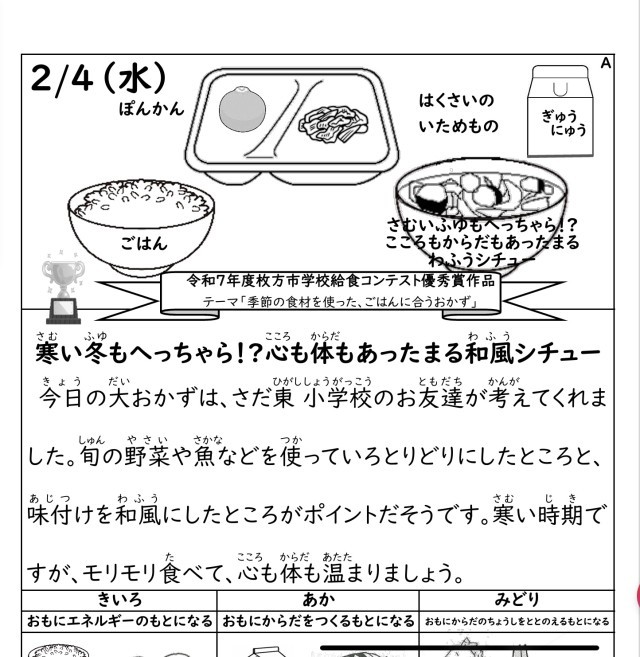 A
2/4(水)
ぽんかん
はくさいの
いためもの
ぎゅう
にゅう
ごはん
さむいふゆもへっちゃら!?
こころもからだもあったまる
わふうシチュー
令和7年度枚方市学校給食コンテスト優秀賞作品
テーマ「季節の食材を使った、ごはんに合うおかず」
さむ ふゆ こころ からだ わふう
寒い冬もへっちゃら!?心も体もあったまる和風シチュー
きょう だい ひがししょうがっこう ともだち かんが
今日の大おかずは、さだ東小学校のお友達が考えてくれま
しゅん やさい さかな つか
した。旬の野菜や魚などを使っていろとりどりにしたところと、
あじつ わふう さむ じき
味付けを和風にしたところがポイントだそうです。寒い時期で
た こころ からだ あたた
すが、モリモリ食べて、心も体も温まりましょう。
きいろ あか みどり
おもにエネルギーのもとになる おもにからだをつくるもとになる おもにからだのちょうしをととのえるもとになる